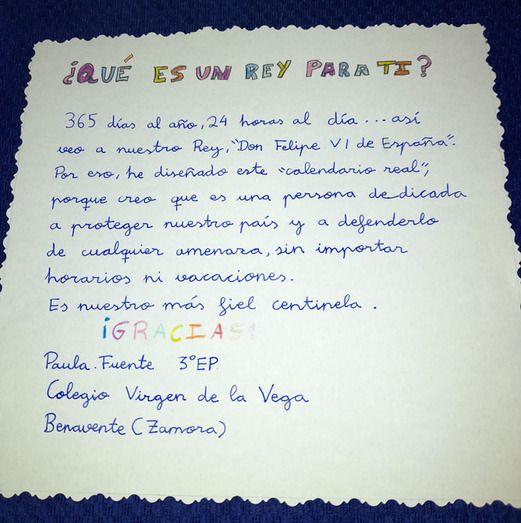 ¿QUÉ ES UN REY PARA TI?
365 días al año, 24 horas al día... así
veo a nuestro Rey, "Don Felipe VI de España".
Por eso, he diseñado este "calendario real",
porque creo que es una persona dedicada
a proteger nuestro país y a defenderlo
de cualquier amenaza, sin importar
horarios ni vacaciones.
Es nuestro más fiel centinela.
¡GRACIAS!
Paula.Fuente 3ºEP
Colegio Virgen de la Vega
Benavente (Zamora)